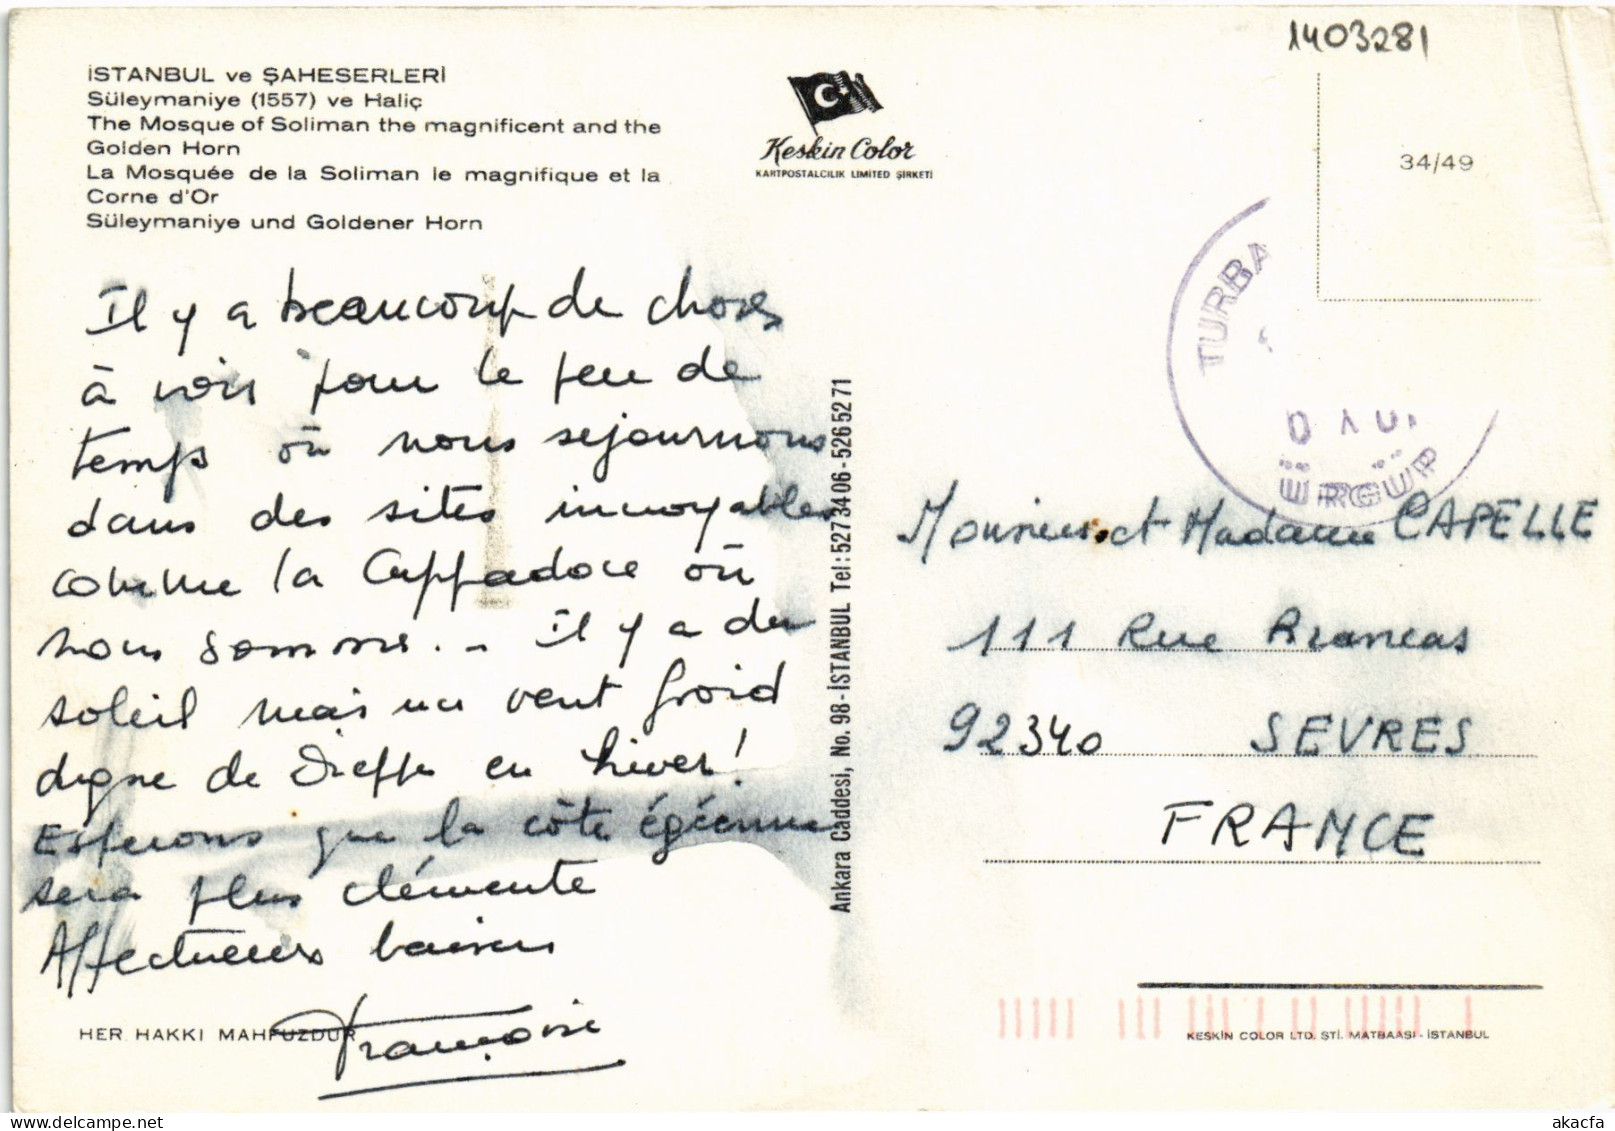 1403281
İSTANBUL ve ŞAHESERLERİ
Süleymaniye (1557) ve Haliç
The Mosque of Soliman the magnificent and the
Golden Horn
La Mosquée de la Soliman le magnifique et la
Corne d'Or
Süleymaniye und Goldener Horn
Keskin Color
KARTPOSTALCILIK LIMITED ŞİRKETİ
34/49
TURBA
ÜRGÜP
Il y a beaucoup de choses
à voir pour le peu de
temps où nous séjournons
dans des sites incroyables
comme la Cappadoce où
nous sommes... Il y a du
soleil mais un vent froid
digne de Dieppe en hiver!
Esperons que la côte égéenne
sera plus clémente
Affectueux baisers
Françoise
Ankara Caddesi, No. 98 - İSTANBUL Tel: 527 34 06 - 526 52 71
Monsieur et Madame CAPELLE
111 Rue Brancas
92340 SEVRES
FRANCE
HER HAKKI MAHFUZDUR
KESKİN COLOR LTD. ŞTİ. MATBAASI - İSTANBUL
akacfa